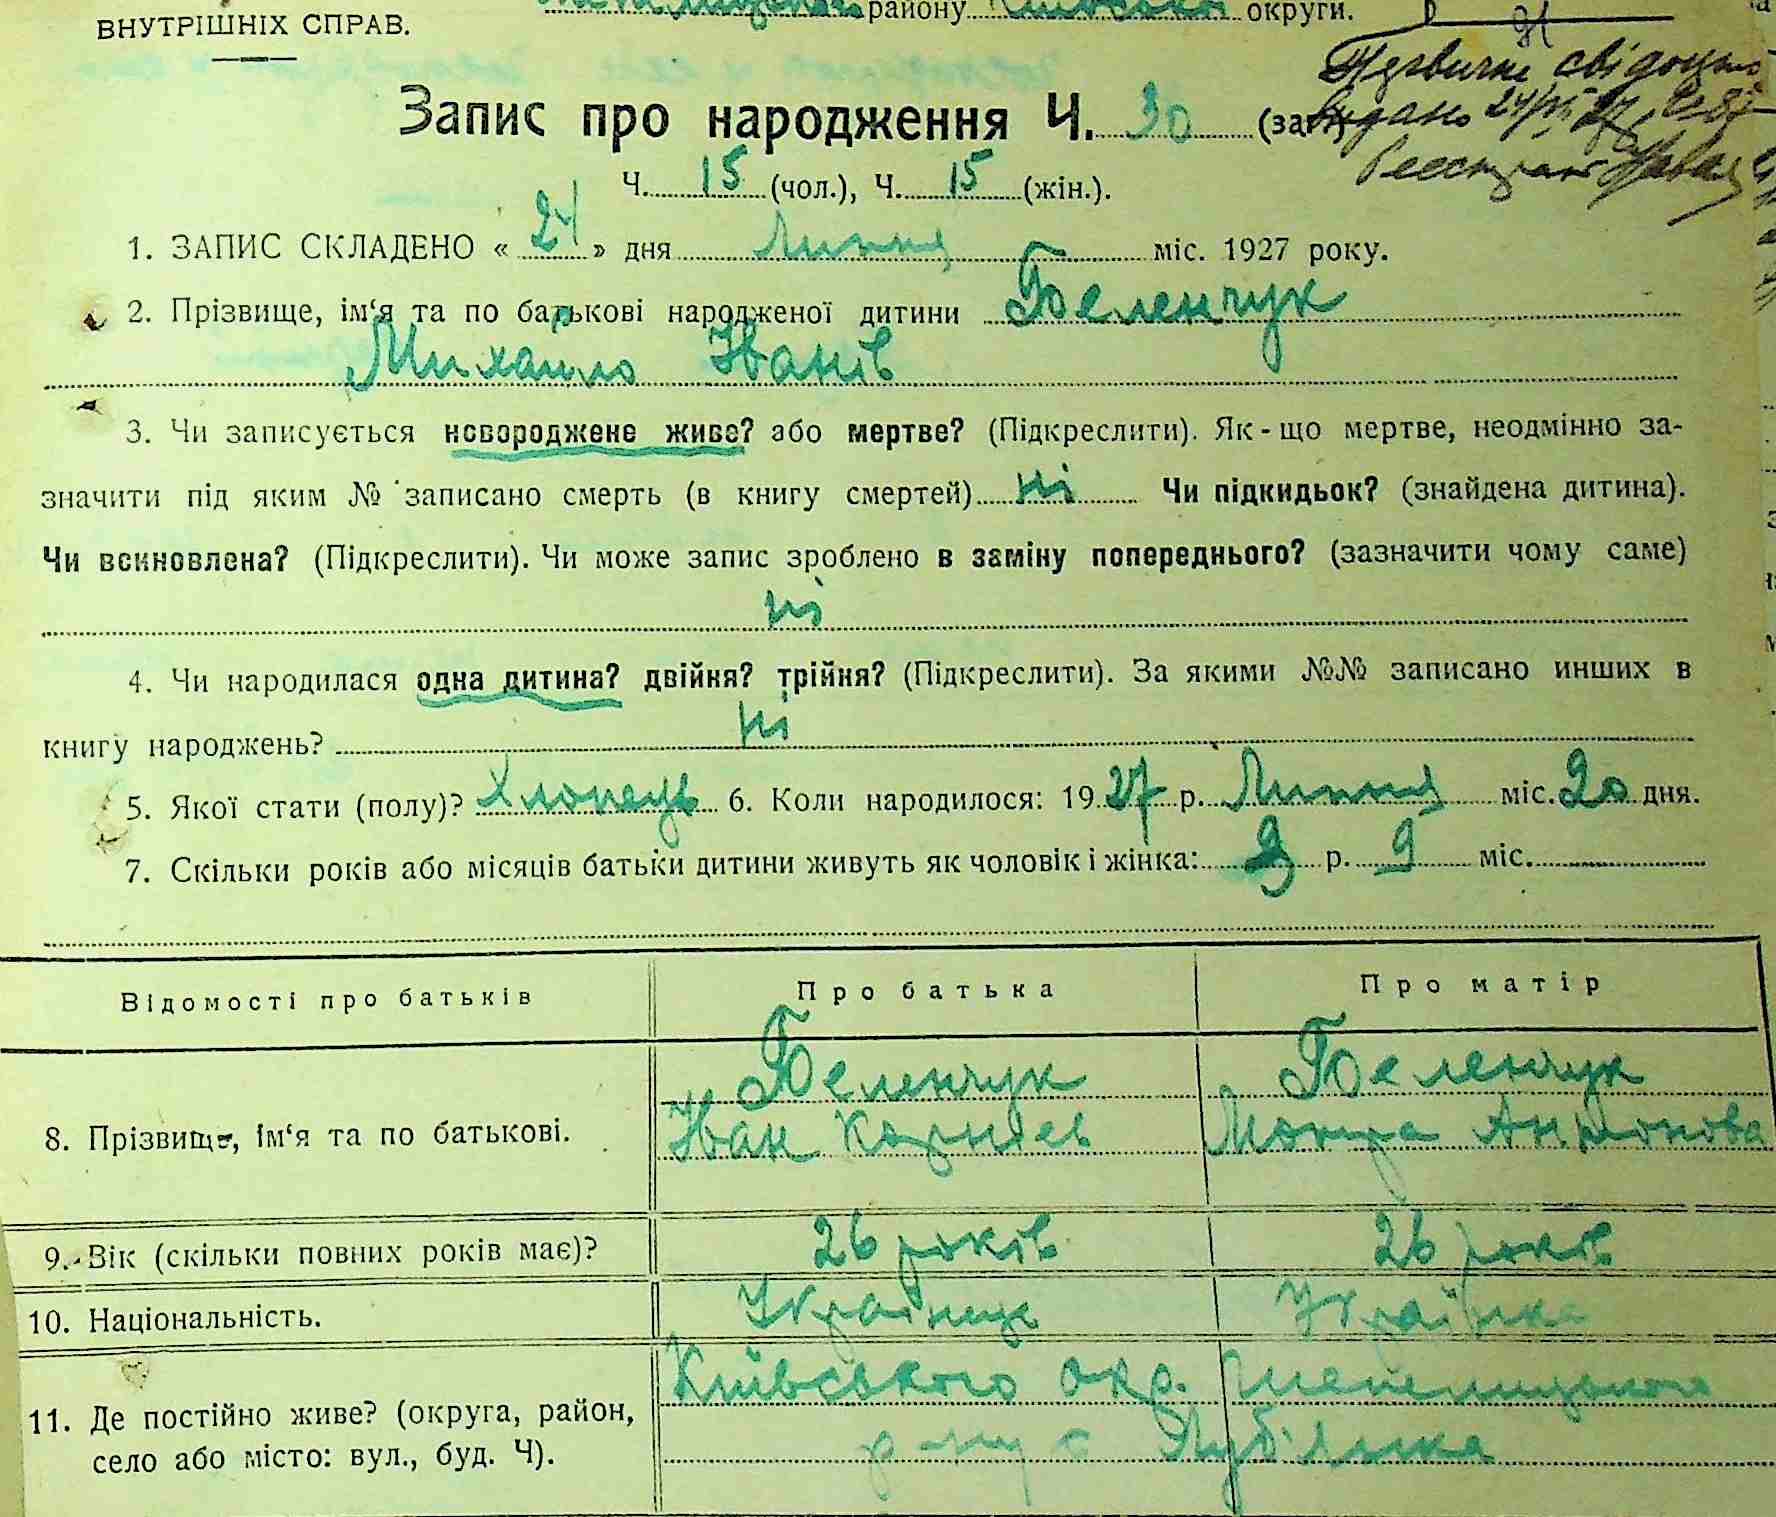 ВНУТРІШНІХ СПРАВ.
району Київської округи.
Первичне свідоцтво
видано 24/VII 27
Запис про народження Ч. 30 (заг.)
Ч. 15 (чол.), Ч. 15 (жін.).
1. ЗАПИС СКЛАДЕНО « 24 » дня Липня міс. 1927 року.
2. Прізвище, ім‘я та по батькові народженої дитини Беленчук
Михайло Іванів
3. Чи записується новороджене живе? або мертве? (Підкреслити). Як-що мертве, неодмінно за-
значити під яким № записано смерть (в книгу смертей) ні Чи підкидьок? (знайдена дитина).
Чи всиновлена? (Підкреслити). Чи може запис зроблено в заміну попереднього? (зазначити чому саме)
ні
4. Чи народилася одна дитина? двійня? трійня? (Підкреслити). За якими №№ записано инших в
книгу народжень? ні
5. Якої стати (полу)? Хлопець 6. Коли народилося: 1927 р. Липня міс. 20 дня.
7. Скільки років або місяців батьки дитини живуть як чоловік і жінка: р. 9 міс.
Відомості про батьків Про батька Про матір
8. Прізвище, ім‘я та по батькові. Беленчук Беленчук
Іван Корнієв Мотря Антонова
9. Вік (скільки повних років має)? 26 років 26 років
10. Національність. Українець Українка
11. Де постійно живе? (округа, район, Київського окр. Шепелицького
село або місто: вул., буд. Ч). р-ну с